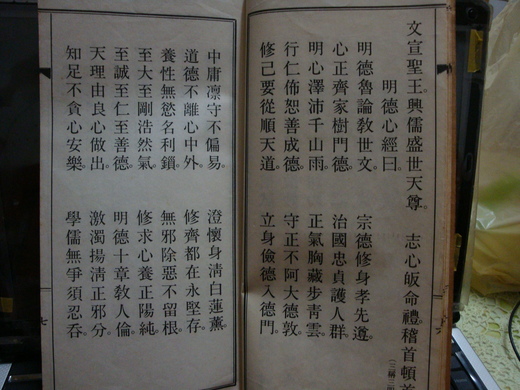 文宣聖王。興儒盛世天尊。 志心皈命禮。稽首頓首
明德心經曰。
明德魯論敎世文。 宗德修身孝先遵。
心正齊家樹門德。 治國忠貞護人群。
明心澤沛千山雨。 正氣胸藏步青雲。
行仁佈恕善成德。 守正不阿大德敦。
修己要從順天道。 立身儉德入德門。
中庸凛守不偏易。 澄懷身清白蓮薰。
道德不離心中外。 修齊都在永堅存。
養性無慾名利鎖。 無邪除惡不留根。
至大至剛浩然氣。 修求心養正陽純。
至誠至仁至善德。 明德十章敎人倫。
天理由良心做出。 激濁揚清正邪分。
知足不貪心安樂。 學儒無爭須忍吞。
七